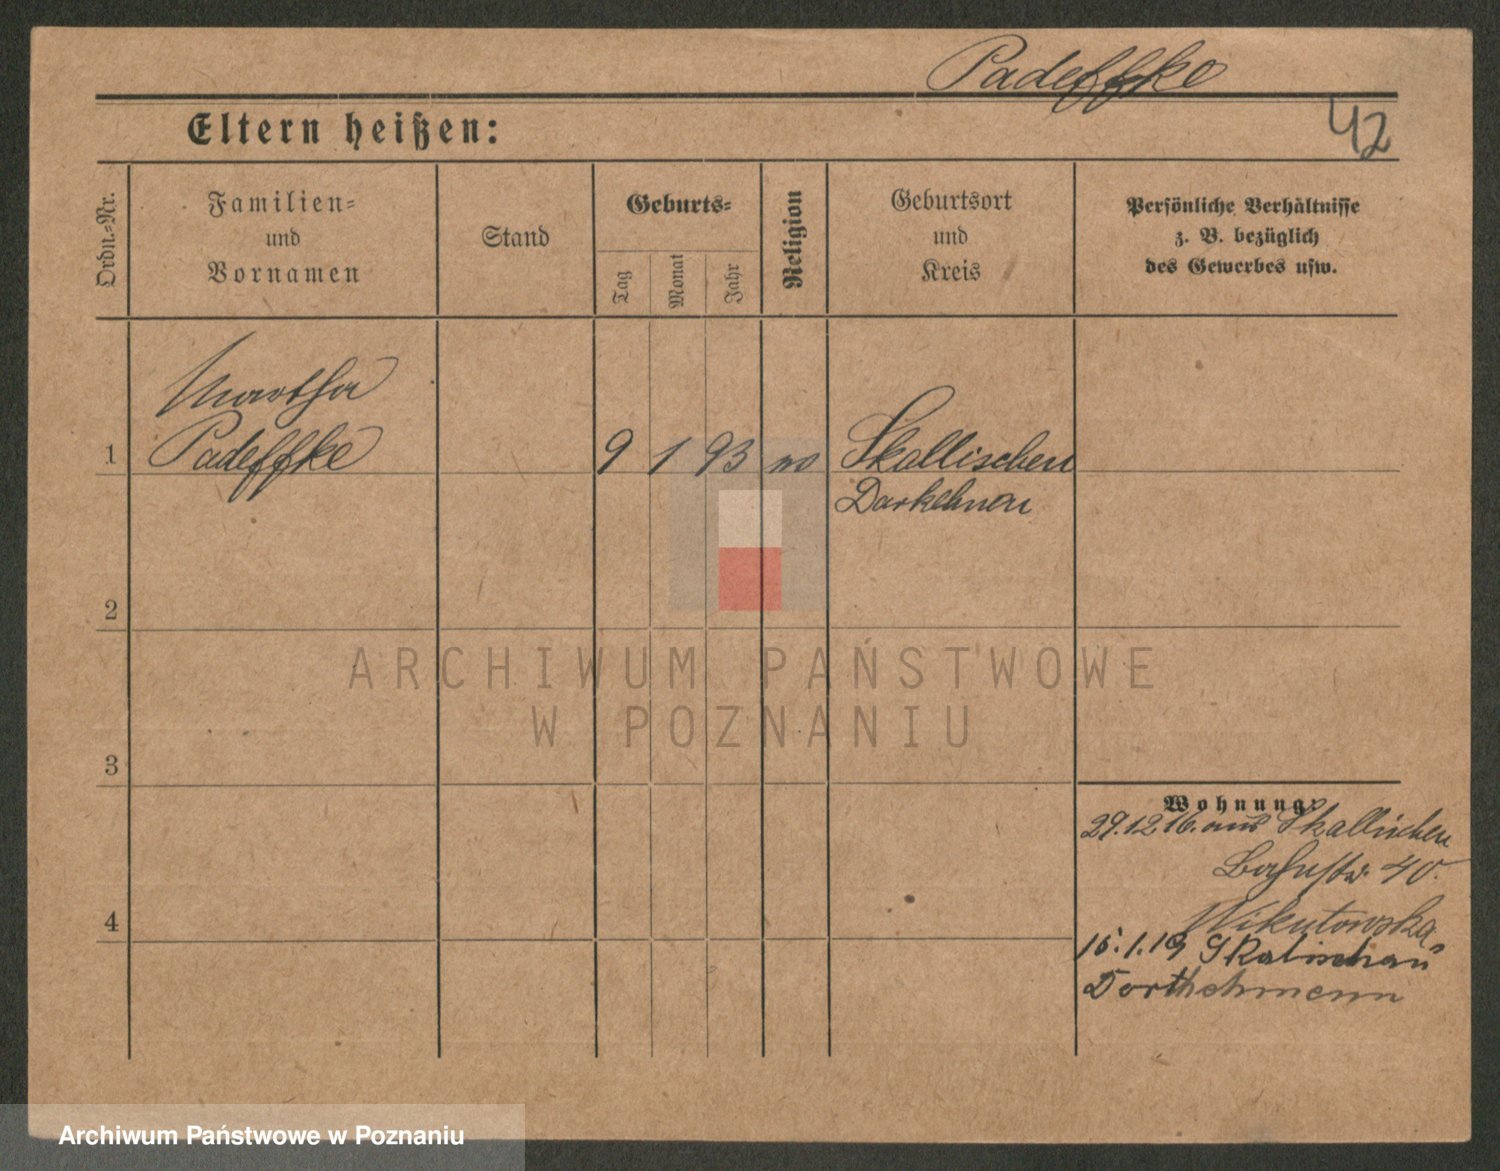 Padeffke
42
Eltern heißen:
Ordn.-Nr.
Familien-
und
Vornamen
Stand
Geburts-
Tag
Monat
Jahr
Religion
Geburtsort
und
Kreis
Persönliche Verhältnisse
z. B. bezüglich
des Gewerbes usw.
Martha
1 Padeffke 9 1 93 Skallischen
Darkehnen
2
ARCHIWUM PAŃSTWOWE
W POZNANIU
3
Wohnung:
29.12.16. aus Skallischen
40.
Wikutowska
4
15.1.19 Skalischau
Dorthehmenn
Archiwum Państwowe w Poznaniu